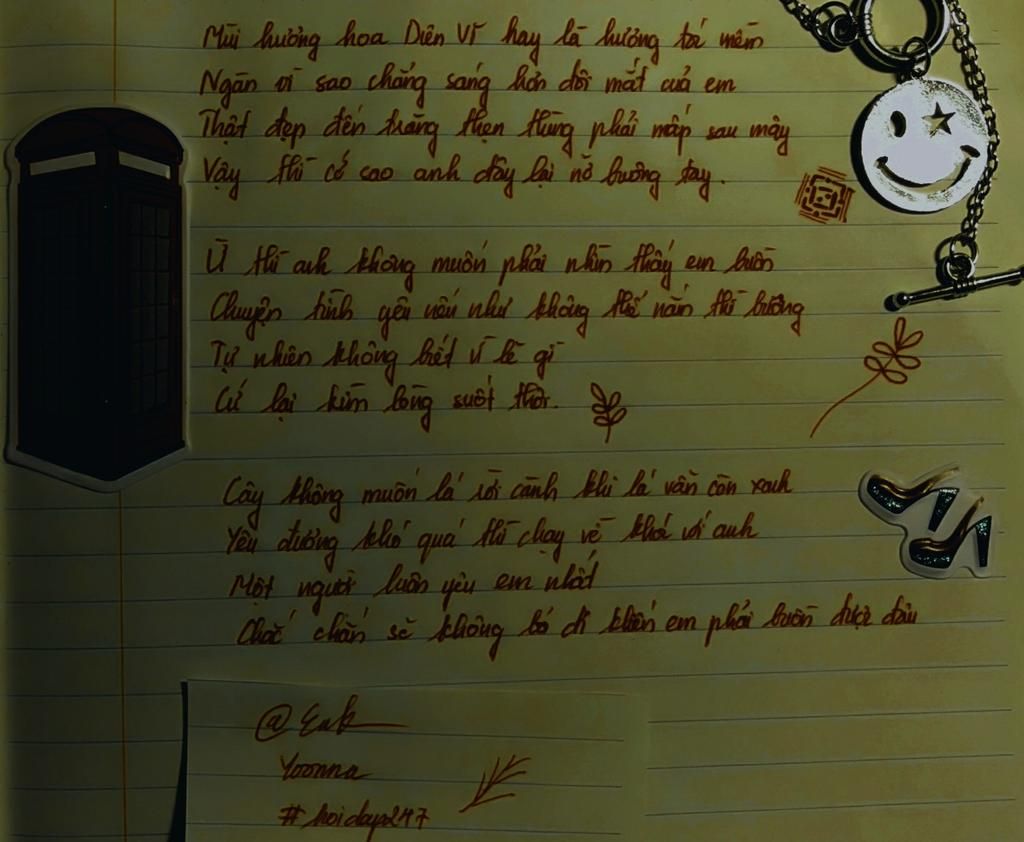 Mùi hương hoa Diên Vĩ hay là hương tóc mềm
Ngàn vì sao chẳng sáng hơn đôi mắt của em
Thật đẹp đến trăng thẹn thùng phải nấp sau mây
Vậy thì cớ sao anh đây lại nỡ buông tay.
Ừ thì anh không muốn phải nhìn thấy em buồn
Chuyện tình yêu nếu như không thể nắn thì buông
Tự nhiên không biết vì lẽ gì
Cứ lại kìm lòng suốt thôi.
Cây không muốn lá rời cành khi lá vẫn còn xanh
Yêu đương khó quá thì chạy về khóc với anh
Một người luôn yêu em nhất
Chắc chắn sẽ không bỏ đi khiến em phải buồn được đâu
Yoonna
#hoidap247